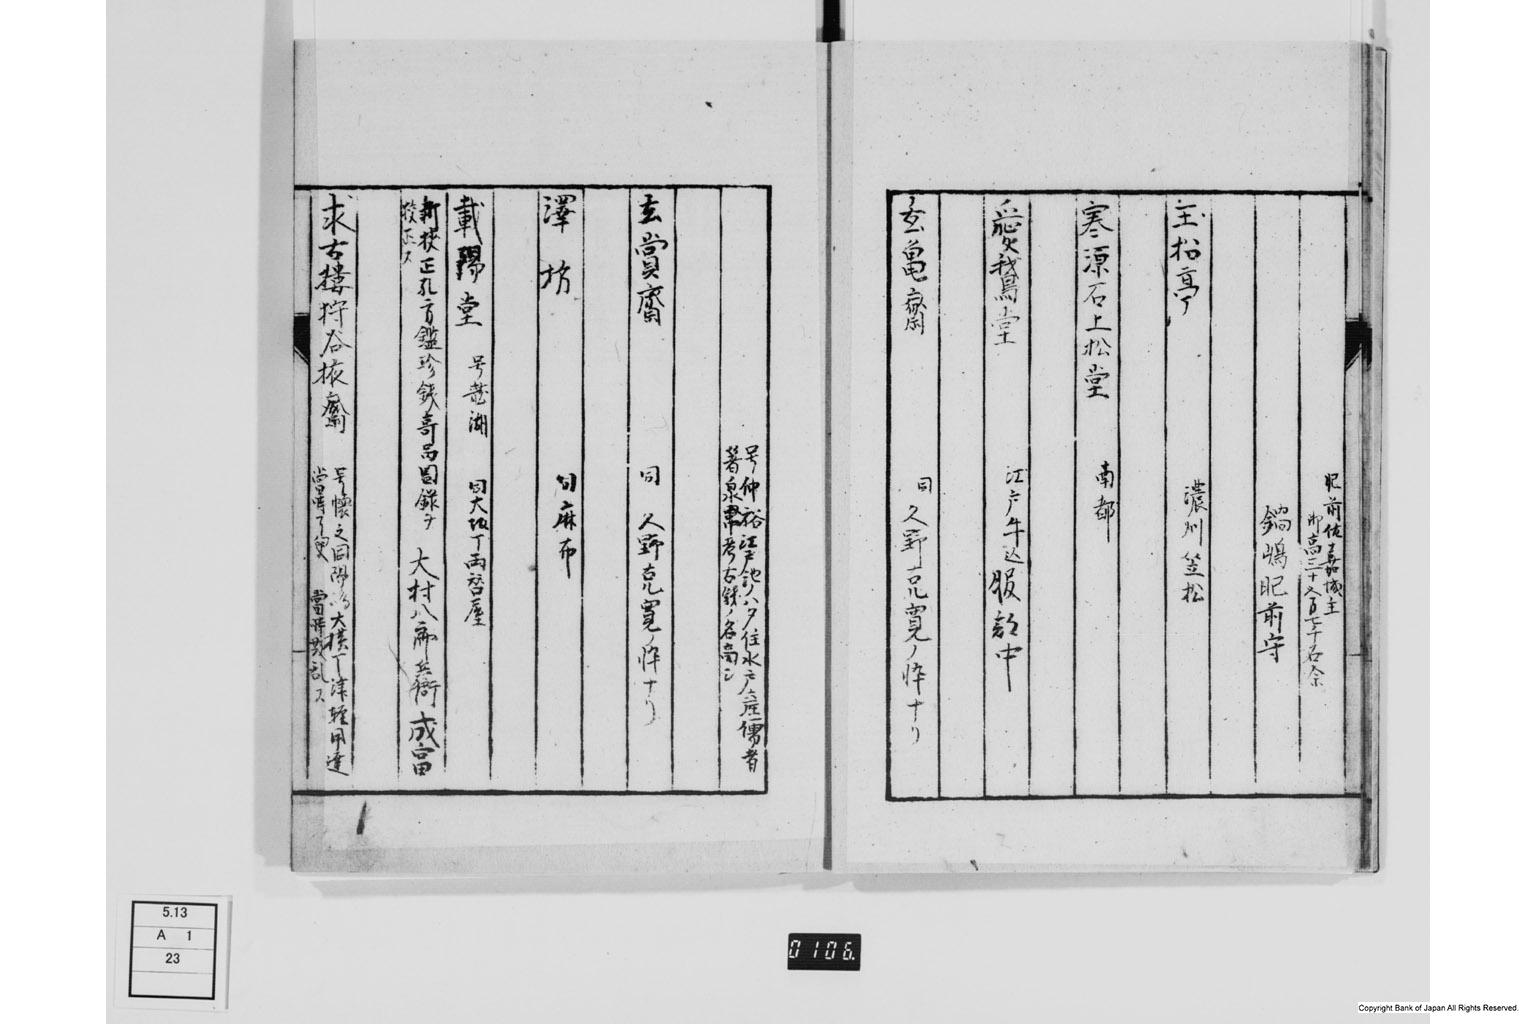 肥前佐嘉城主
御高三十五万七千石余
鍋嶋肥前守
玉松亭
濃州笠松
寒源石上松堂
南都
愛鵞堂
江戸牛込服部中
玄亀嶽
同久野克寛ノ悴ナリ
号仲裕江戸
住水戸産儒者
著泉
考古銭ノ名高シ
玄賞齋
同
久野克寛ノ悴ナリ
澤坊
同麻布
載陽堂
号龍湖
同大坂丁両替屋
新校正孔方鑑珍銭奇品図録ヲ
校正ス
大村八郎兵衛成富
求古楼狩谷掖齋
号懐之同湯嶋大横丁津軽用達
5.13
A 1
23
0106.
Copyright Bank of Japan All Rights Reserved.